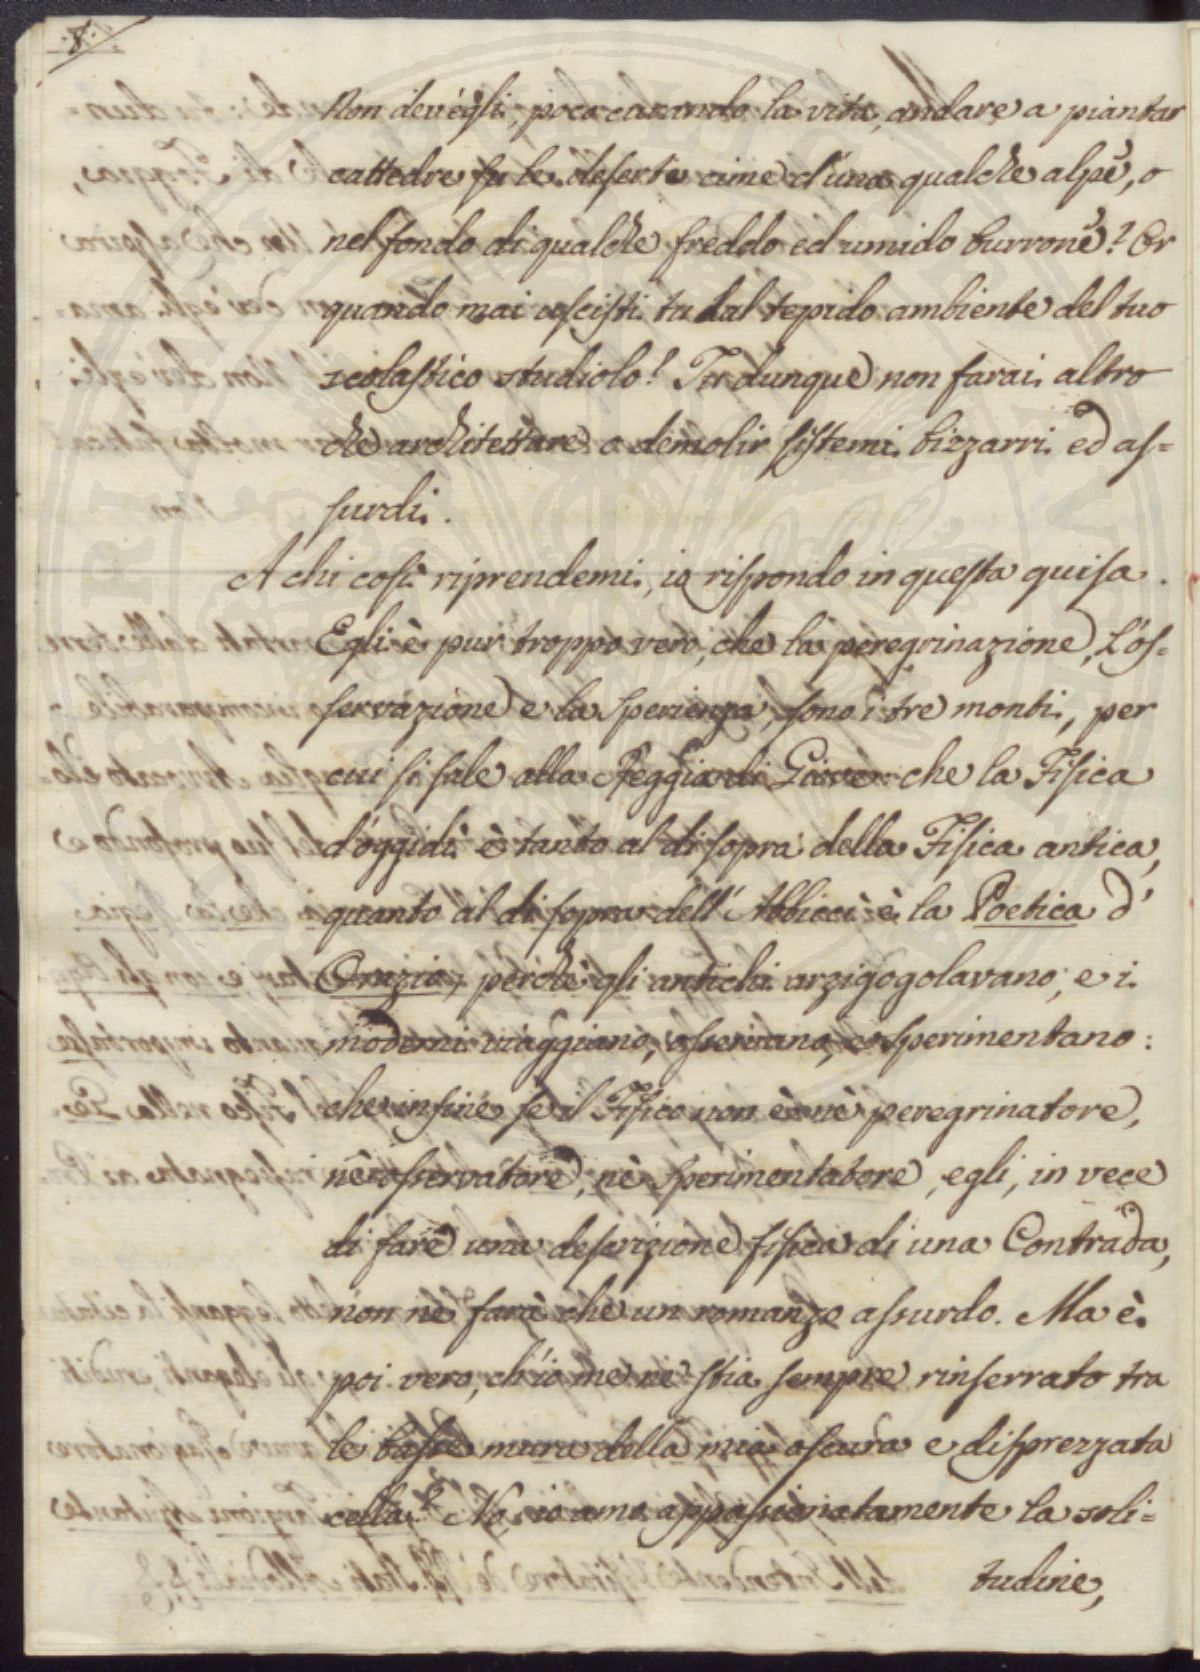 .8.
Non dev'egli, poco curando la vita, andare a piantar
cattedre su le deserte cime d'una qualche alpe, o
nel fondo di qualche freddo ed umido burrone? Or
quando mai uscisti tu dal tepido ambiente del tuo
scolastico studiolo? Tu dunque non farai altro
che architettare o demolir sistemi bizzarri ed as=
surdi.
A chi così riprendemi, io rispondo in questa guisa.
Egli è pur troppo vero, che la peregrinazione, l'os=
servazione e la sperienza, sono i tre monti, per
cui si sale alla Reggia di Giove: che la Fisica
d'oggidì è tanto al di sopra della Fisica antica,
quanto al di sopra dell'Abbiccì è la Poetica d'
Orazio, perchè gli antichi arzigogolavano, e i
moderni viaggiano, osservano, e sperimentano:
che infine se il Fisico non è nè peregrinatore,
nè osservatore, nè sperimentatore, egli, in vece
di fare una descrizione fisica di una Contrada,
non ne farà che un romanzo assurdo. Ma è
poi vero, ch'io me ne stia sempre rinserrato tra
le basse mura della mia oscura e disprezzata
cella? No, io amo appassionatamente la soli=
tudine,